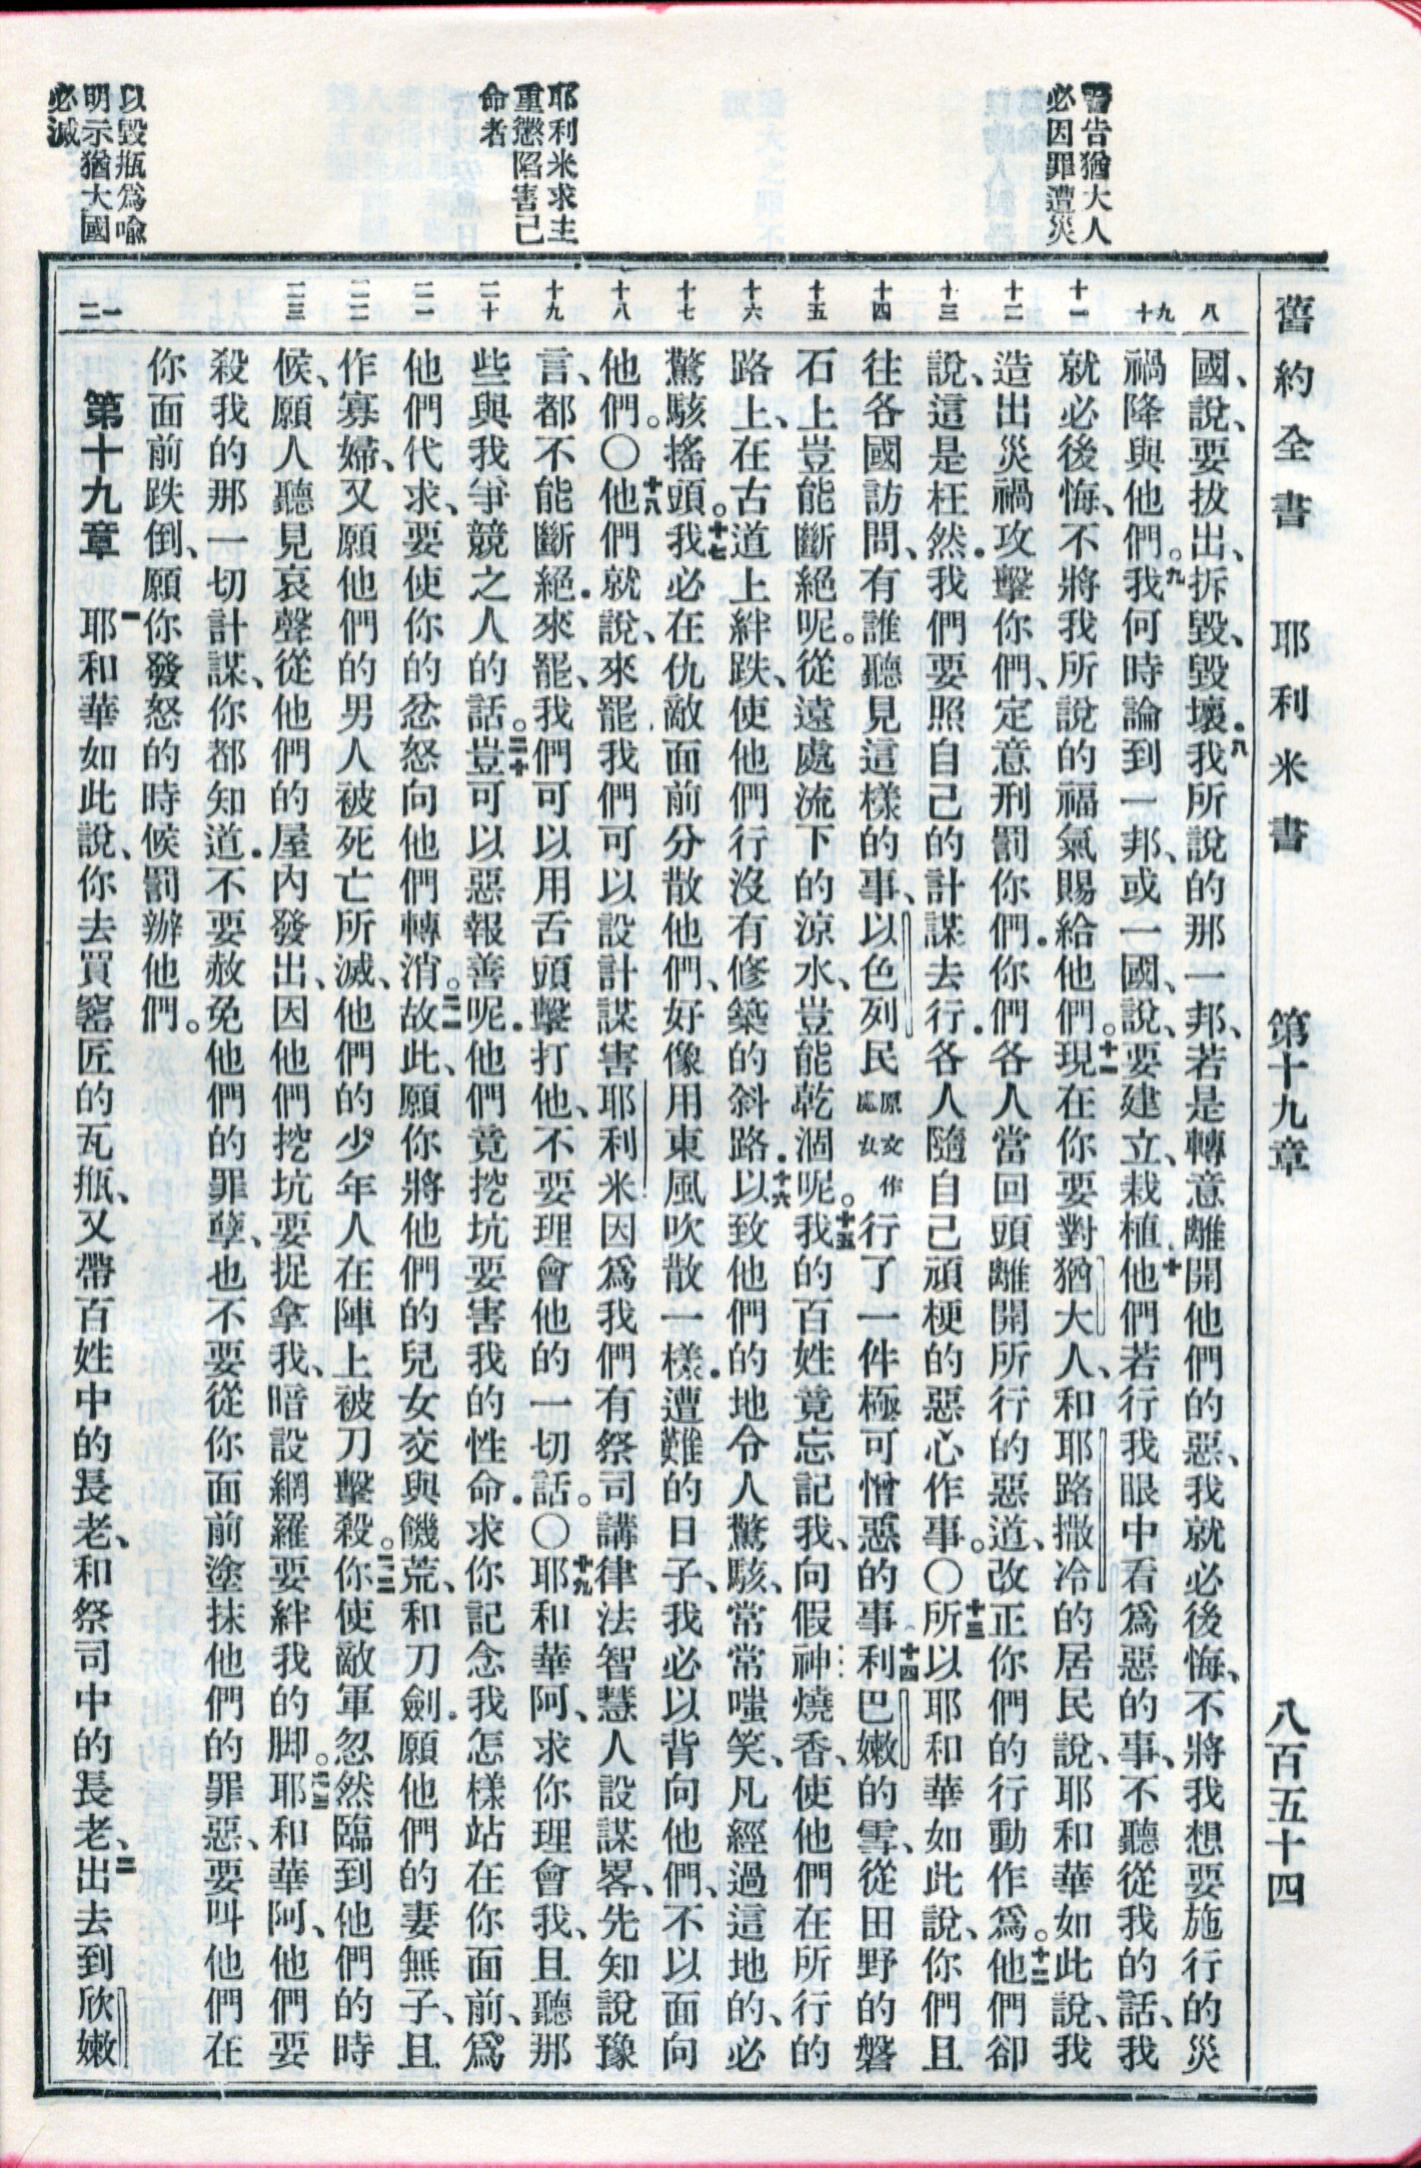 舊約全書　耶利米書　第十九章　八百五十四
警告猶大人
必因罪遭災
耶利米求主
重懲陷害己
命者
以毀瓶爲喩
明示猶大國
必滅
八
九
十
十一
十二
十三
十四
十五
十六
十七
十八
十九
二十
二一
二二
二三
一
二
國、說、要拔出、拆毀、毀壞．八我所說的那一邦、若是轉意離開他們的惡、我就必後悔、不將我想要施行的災
禍降與他們。九我何時論到一邦、或一國、說、要建立、栽植．十他們若行我眼中看爲惡的事、不聽從我的話、我
就必後悔、不將我所說的福氣賜給他們。十一現在你要對猶大人、和耶路撒冷的居民說、耶和華如此說、我
造出災禍攻擊你們、定意刑罰你們．你們各人當回頭離開所行的惡道、改正你們的行動作爲。十二他們卻
說、這是枉然．我們要照自己的計謀去行．各人隨自己頑梗的惡心作事。〇十三所以耶和華如此說、你們且
往各國訪問、有誰聽見這樣的事、以色列民原文作處女行了一件極可憎惡的事．十四利巴嫩的雪、從田野的磐
石上豈能斷絕呢。從遠處流下的涼水、豈能乾涸呢。十五我的百姓竟忘記我、向假神燒香、使他們在所行的
路上、在古道上絆跌、使他們行沒有修築的斜路．十六以致他們的地令人驚駭、常常嗤笑、凡經過這地的、必
驚駭搖頭。十七我必在仇敵面前分散他們、好像用東風吹散一樣．遭難的日子、我必以背向他們、不以面向
他們。〇十八他們就說、來罷．我們可以設計謀害耶利米因爲我們有祭司講律法智慧人設謀畧、先知說豫
言、都不能斷絕．來罷、我們可以用舌頭擊打他、不要理會他的一切話。〇十九耶和華阿、求你理會我、且聽那
些與我爭競之人的話。二十豈可以惡報善呢．他們竟挖坑要害我的性命．求你記念我怎樣站在你面前、爲
他們代求、要使你的忿怒向他們轉消。二一故此、願你將他們的兒女交與饑荒、和刀劍．願他們的妻無子、且
作寡婦、又願他們的男人被死亡所滅、他們的少年人在陣上被刀擊殺。二二你使敵軍忽然臨到他們的時
候、願人聽見哀聲從他們的屋內發出、因他們挖坑要捉拿我、暗設網羅要絆我的脚。二三耶和華阿、他們要
殺我的那一切計謀、你都知道．不要赦免他們的罪孽、也不要從你面前塗抹他們的罪惡、要叫他們在
你面前跌倒、願你發怒的時候罰辦他們。
第十九章　一耶和華如此說、你去買窰匠的瓦瓶、又帶百姓中的長老、和祭司中的長老、二出去到欣嫩